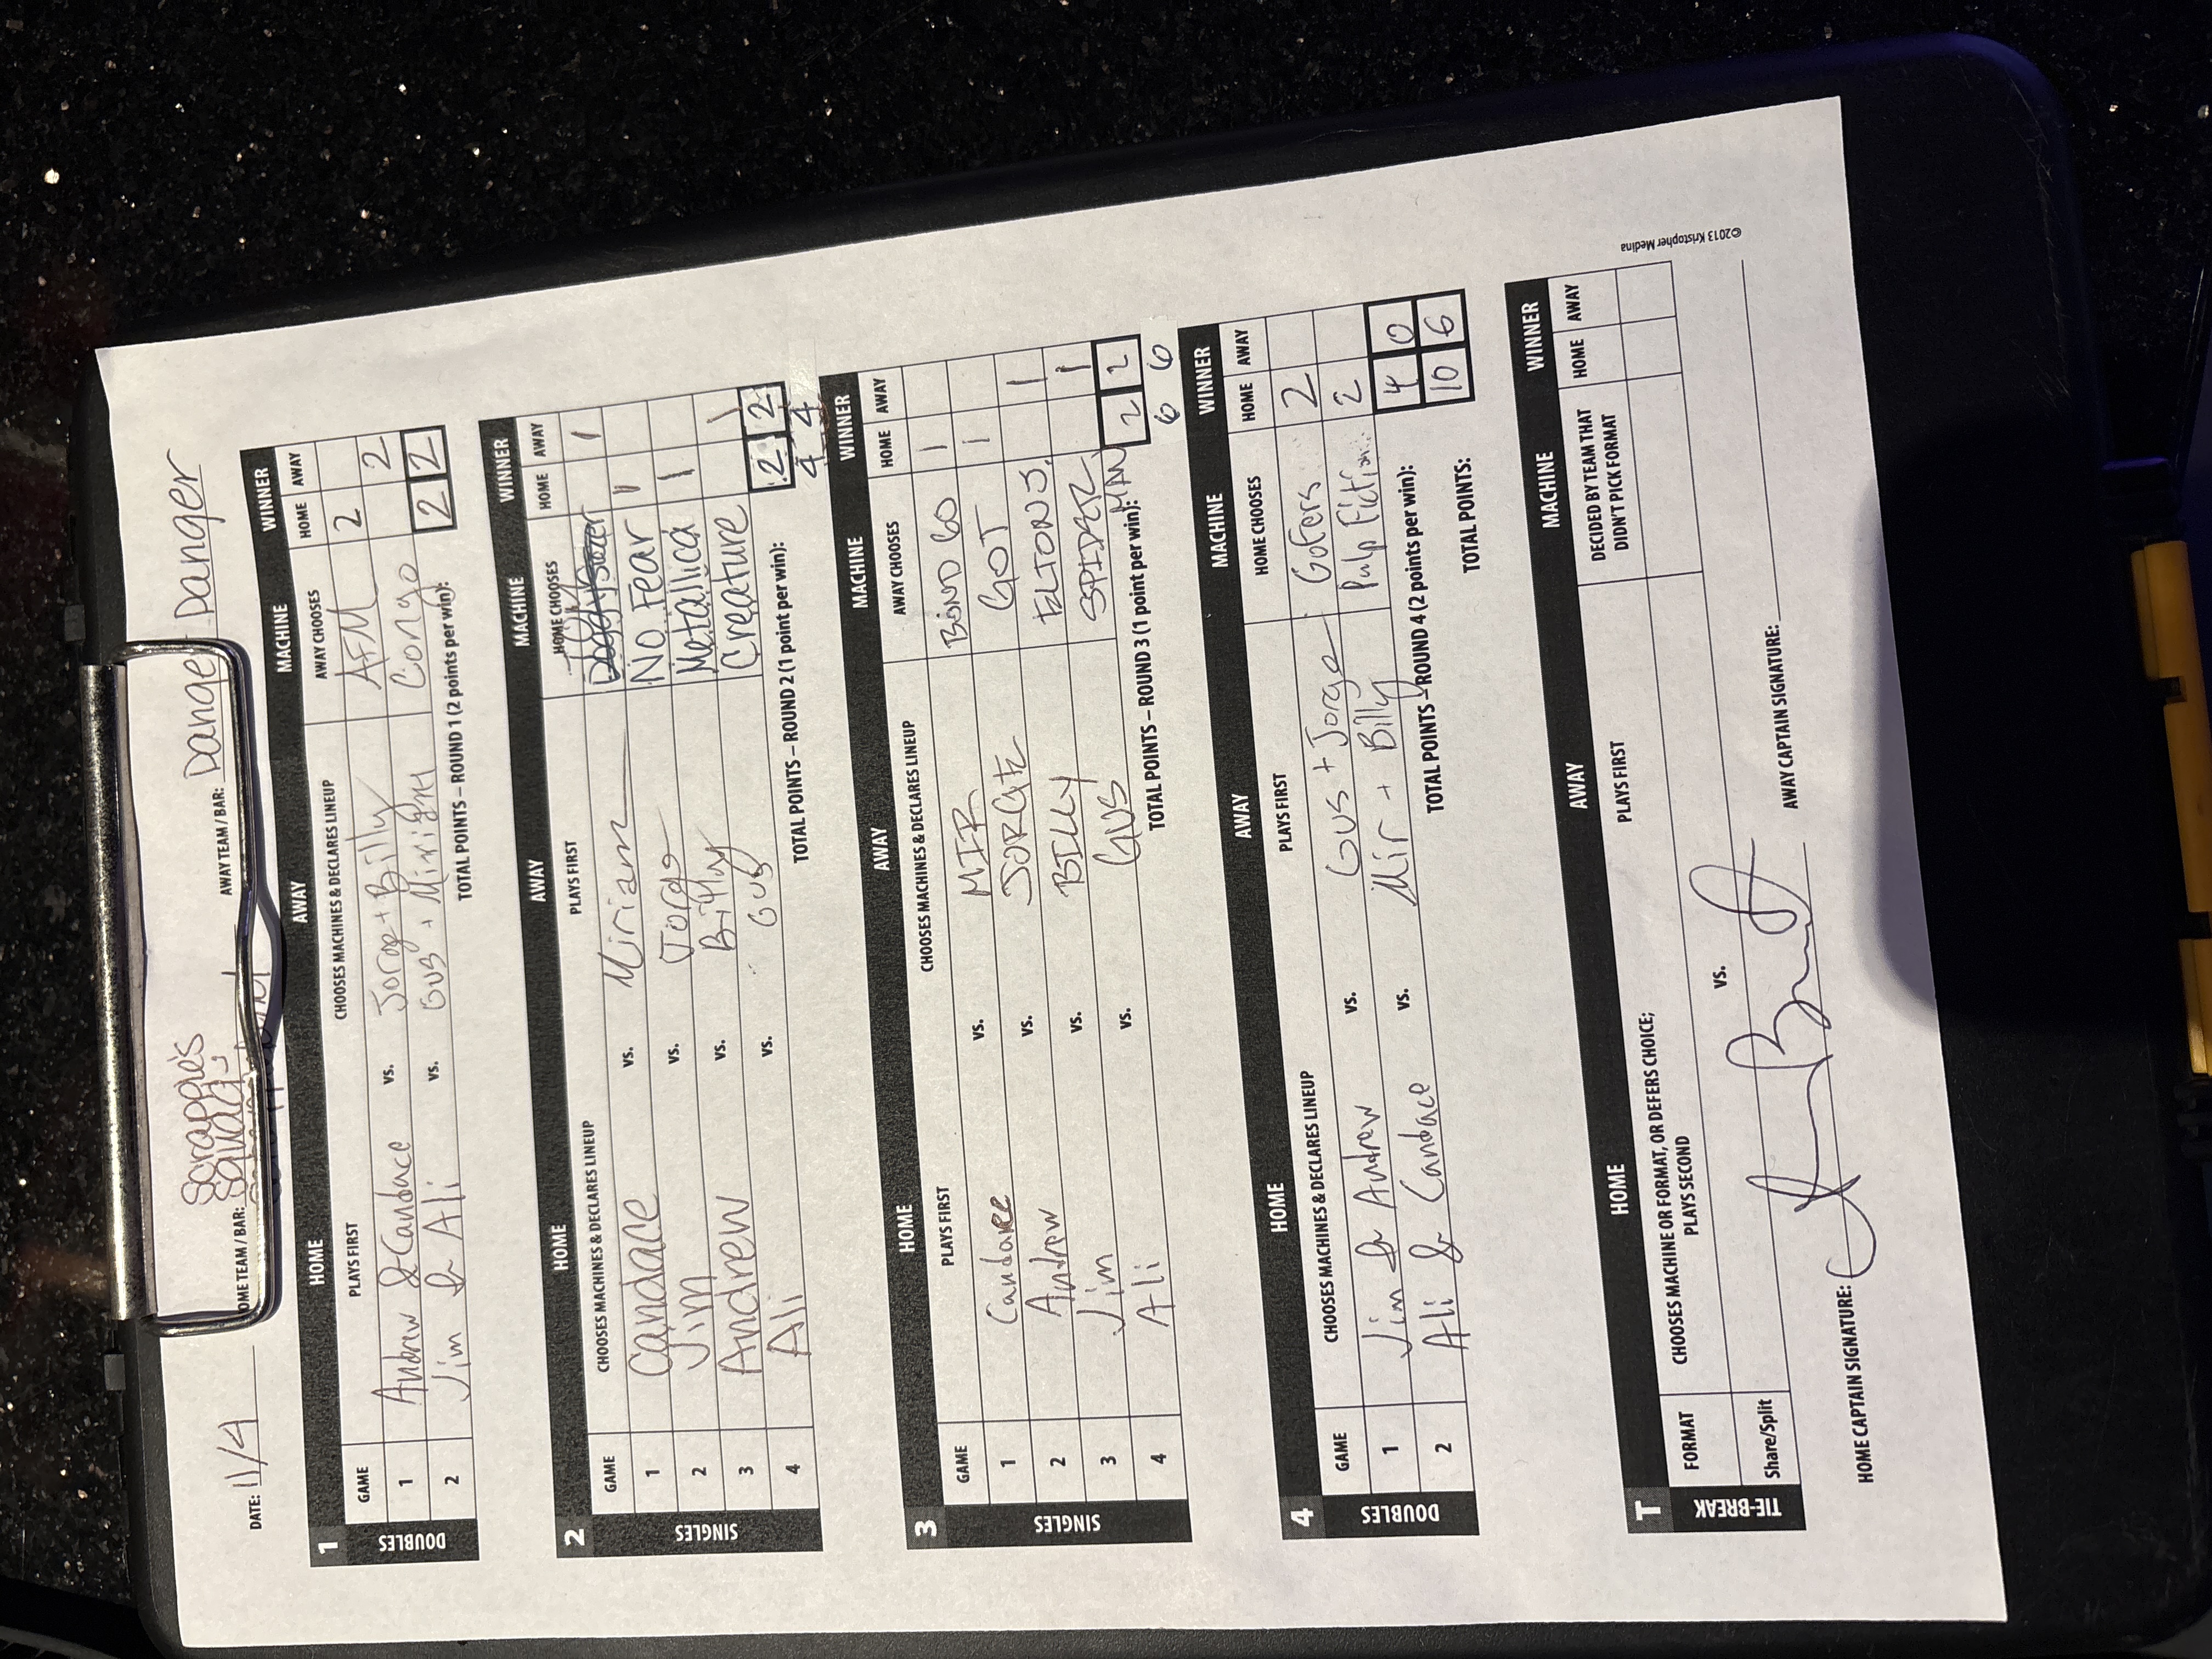 DATE: 11/4 OME TEAM / BAR: Scrapple's Squad AWAY TEAM / BAR: Danger Danger
1 HOME AWAY MACHINE WINNER
GAME PLAYS FIRST CHOOSES MACHINES & DECLARES LINEUP AWAY CHOOSES HOME AWAY
DOUBLES
1 Andrew & Candace vs. Jorge + Billy AFM 2
2 Jim & Ali vs. Gus + Congo 2
TOTAL POINTS – ROUND 1 (2 points per win): 2 2
2 HOME AWAY MACHINE WINNER
GAME CHOOSES MACHINES & DECLARES LINEUP PLAYS FIRST HOME CHOOSES HOME AWAY
SINGLES
1 Candace vs. Miriam 1
2 Jim vs. Jorge No Fear 1
3 Andrew vs. Billy Metallica 1
4 Ali vs. Gus Creature 1
TOTAL POINTS – ROUND 2 (1 point per win): 2 2
4 4
3 HOME AWAY MACHINE WINNER
GAME PLAYS FIRST CHOOSES MACHINES & DECLARES LINEUP AWAY CHOOSES HOME AWAY
SINGLES
1 Candace vs. MIR BOND 60 1
2 Andrew vs. JORGE GOT 1
3 Jim vs. BILLY ELTON J. 1
4 Ali vs. GUS SPIDER MAN 1
TOTAL POINTS – ROUND 3 (1 point per win): 2 2
6 6
4 HOME AWAY MACHINE WINNER
GAME CHOOSES MACHINES & DECLARES LINEUP PLAYS FIRST HOME CHOOSES HOME AWAY
DOUBLES
1 Jim & Andrew vs. Gus + Jorge Gofers 2
2 Ali & Candace vs. Mir + Billy Pulp Fiction 2
TOTAL POINTS – ROUND 4 (2 points per win): 4 0
TOTAL POINTS: 10 6
T HOME AWAY MACHINE WINNER
FORMAT CHOOSES MACHINE OR FORMAT, OR DEFERS CHOICE; PLAYS SECOND PLAYS FIRST DECIDED BY TEAM THAT DIDN'T PICK FORMAT HOME AWAY
TIE-BREAK
Share/Split vs.
HOME CAPTAIN SIGNATURE: AWAY CAPTAIN SIGNATURE:
©2013 Kristopher Medina